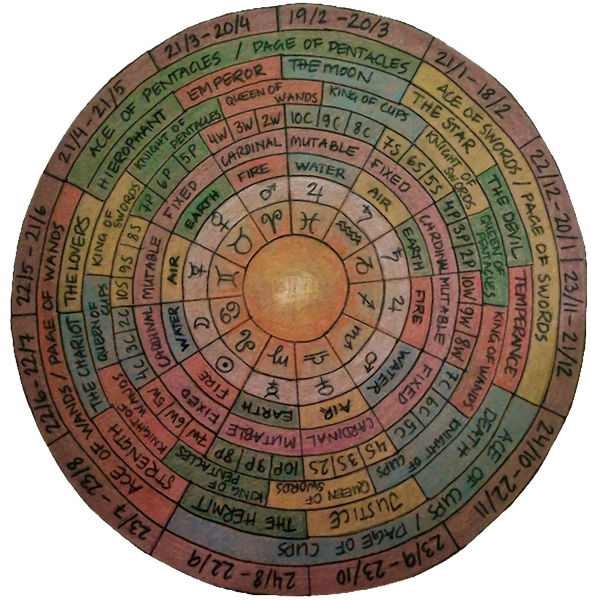 19/2 - 20/3
21/1 - 18/2
22/12 - 20/1
23/11 - 21/12
24/10 - 22/11
23/9 - 23/10
24/8 - 22/9
23/7 - 23/8
22/6 - 22/7
22/5 - 21/6
21/4 - 21/5
21/3 - 20/4
ACE OF PENTACLES / PAGE OF PENTACLES
ACE OF SWORDS / PAGE OF SWORDS
ACE OF CUPS / PAGE OF CUPS
ACE OF WANDS / PAGE OF WANDS
THE MOON
THE STAR
THE DEVIL
TEMPERANCE
DEATH
JUSTICE
THE HERMIT
STRENGTH
THE CHARIOT
THE LOVERS
HIEROPHANT
EMPEROR
KING OF CUPS
KNIGHT OF
SWORDS
QUEEN OF
PENTACLES
KING OF WANDS
KNIGHT OF CUPS
QUEEN OF
SWORDS
KING OF
PENTACLES
KNIGHT OF
WANDS
QUEEN OF
CUPS
KING OF
SWORDS
KNIGHT OF
PENTACLES
QUEEN OF
WANDS
10C 9C 8C
7S 6S 5S
4P 3P 2P
10W 9W 8W
7C 6C 5C
4S 3S 2S
10P 9P 8P
7W 6W 5W
4C 3C 2C
10S 9S 8S
7P 6P 5P
4W 3W 2W
MUTABLE
FIXED
CARDINAL
MUTABLE
FIXED
CARDINAL
MUTABLE
FIXED
CARDINAL
MUTABLE
FIXED
CARDINAL
WATER
AIR
EARTH
FIRE
WATER
AIR
EARTH
FIRE
WATER
AIR
EARTH
FIRE
♃ ♄ ♄ ♃ ♂ ♀ ☿ ☉ ☽ ☿ ♀ ♂
♓ ♒ ♑ ♐ ♏ ♎ ♍ ♌ ♋ ♊ ♉ ♈